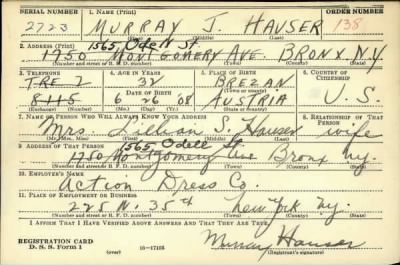 SERIAL NUMBER 1. NAME (Print) ORDER NUMBER
2723 MURRAY J. HAUSER 138
(First) (Middle) (Last)
2. ADDRESS (Print) 1565 Odell St.
1750 MONTGOMERY AVE. BRONX. N.Y
(Number and street or R. F. D. number) (Town) (County) (State)
3. TELEPHONE 4. AGE IN YEARS 5. PLACE OF BIRTH 6. COUNTRY OF CITIZENSHIP
TRE 32 BREZAN
8115 DATE OF BIRTH (Town or county)
6 26 08 AUSTRIA U.S.
(Exchange) (No.) (Mo.) (Day) (Yr.) (State or country)
7. NAME OF PERSON WHO WILL ALWAYS KNOW YOUR ADDRESS 8. RELATIONSHIP OF THAT PERSON
Mrs. Lillian S. Hauser wife
(Mr., Mrs., Miss) (First) (Middle) (Last)
9. ADDRESS OF THAT PERSON 1565 Odell St
1750 Montgomery Ave Bronx Ny.
(Number and street or R. F. D. number) (Town) (County) (State)
10. EMPLOYER'S NAME
Action Dress Co.
11. PLACE OF EMPLOYMENT OR BUSINESS
225 N. 35th New York Ny.
(Number and street or R. F. D. number) (Town) (County) (State)
I AFFIRM THAT I HAVE VERIFIED ABOVE ANSWERS AND THAT THEY ARE TRUE.
REGISTRATION CARD
D. S. S. Form 1 (over) 16—17105 Murray Hauser
(Registrant's signature)